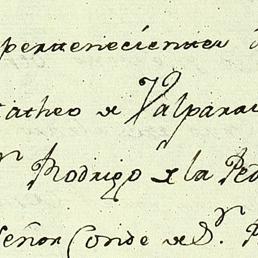 pertenecientes
Matheo de Valparai
Rodrigo de la Peñ
Señor Conde de S.r